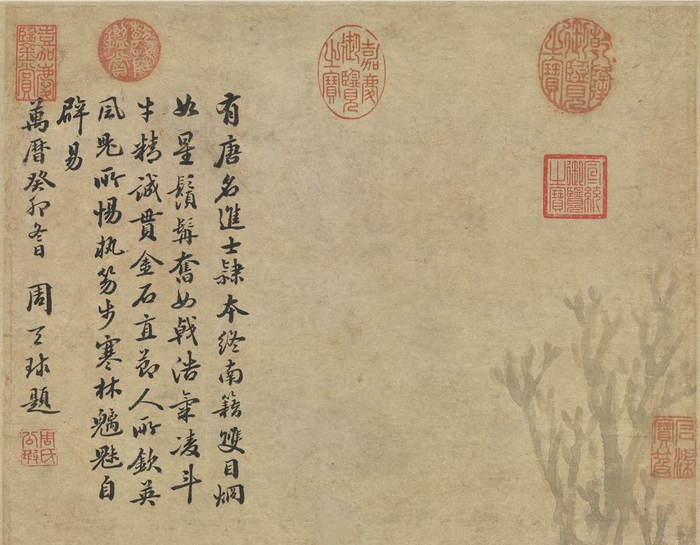 乾隆御覽之寶
宣統御覽之寶
石渠寶笈
嘉慶御覽之寶
有唐名進士隸本終南籍雙目炯
如星鬚髯奮如戟浩氣凌斗
牛精誠貫金石直節人所欽英
風鬼所惕執笏步寒林魑魅自
辟易
萬曆癸卯冬日 周天球題
周氏公瑕
乾隆鑑賞